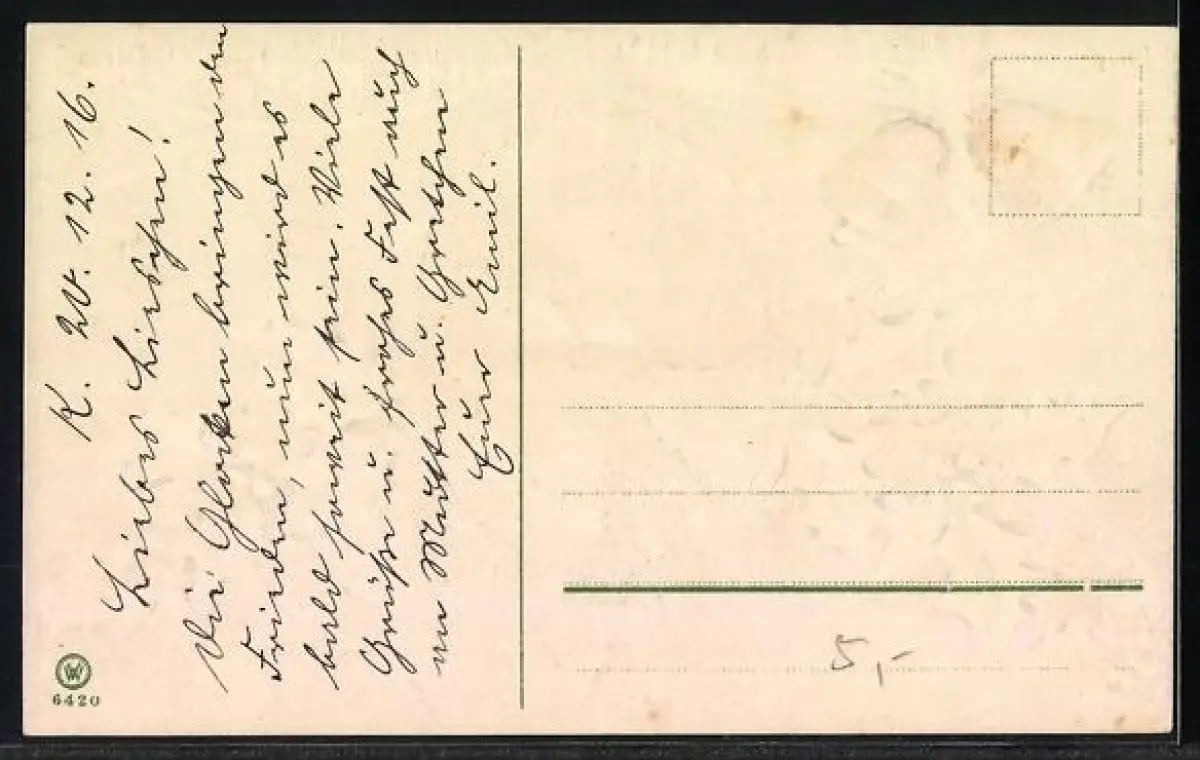 K. 20. 12. 16.
Liebes Lieschen!
Die Glocken bringen den
Frieden, nun wird es
bald soweit sein. Viele
Grüße u. frohes Fest auch
an Mutter u. Gretchen
Euer Emil.
W
6420
5,-